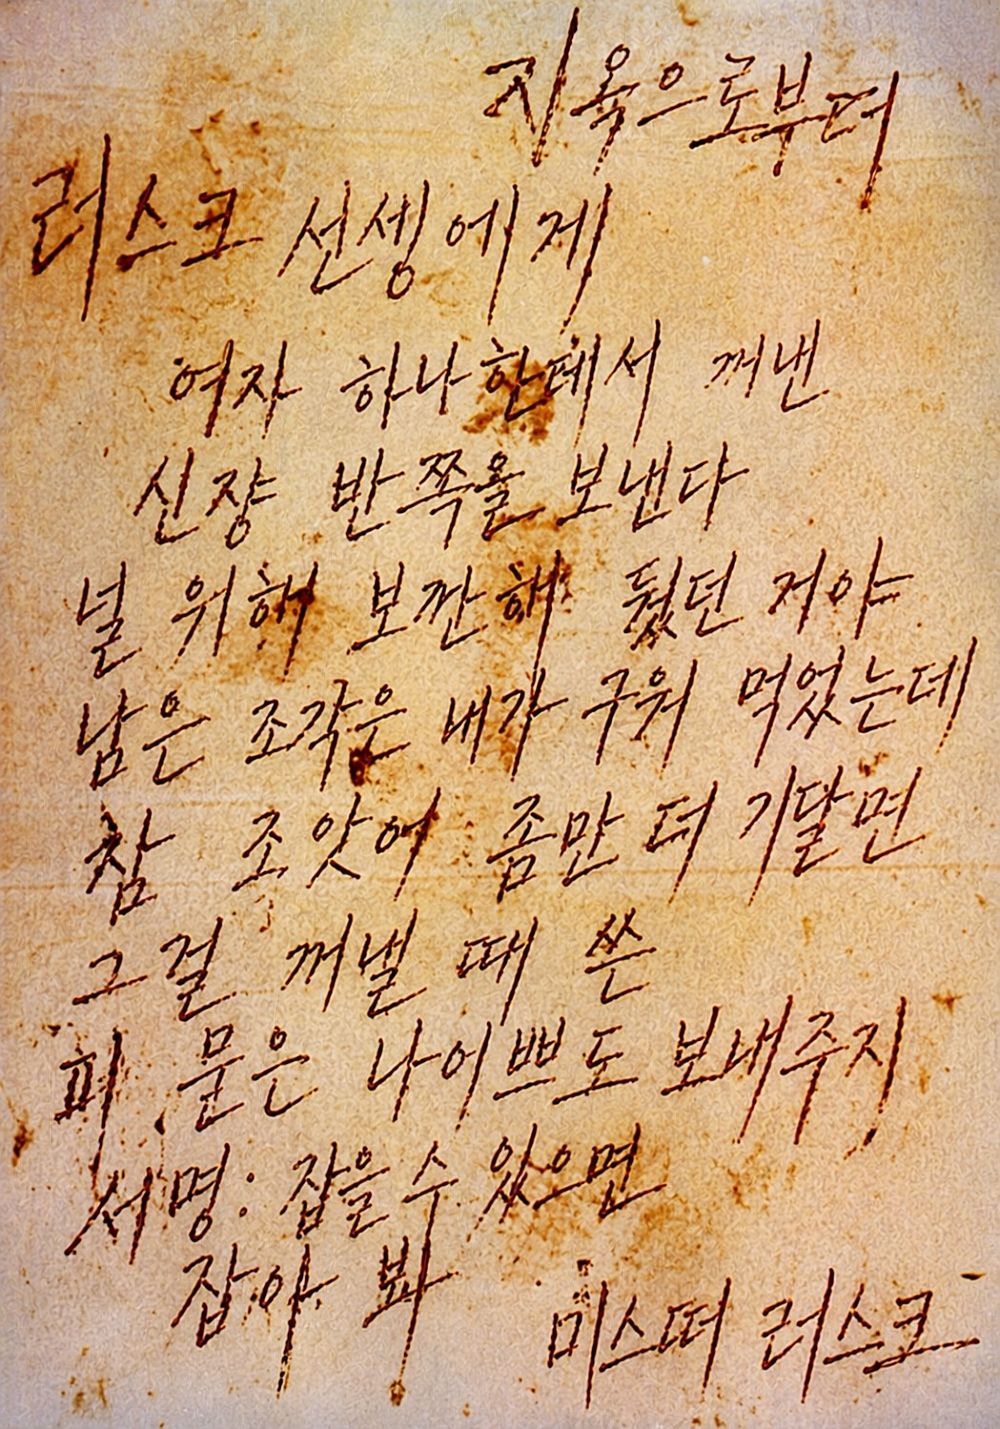 지옥으로부터
러스크 선셍에게
여자 하나한데서 꺼낸
신쟝 반쪽을 보낸다
널 위해 보깐해 뒀던 거야
남은 조각은 내가 구워 먹었는데
참 조앗어 좀만 더 기달면
그걸 꺼낼 때 쓴
피 묻은 나이쁘도 보내주지
서명: 잡을 수 있으면
잡아 봐
미스떠 러스크